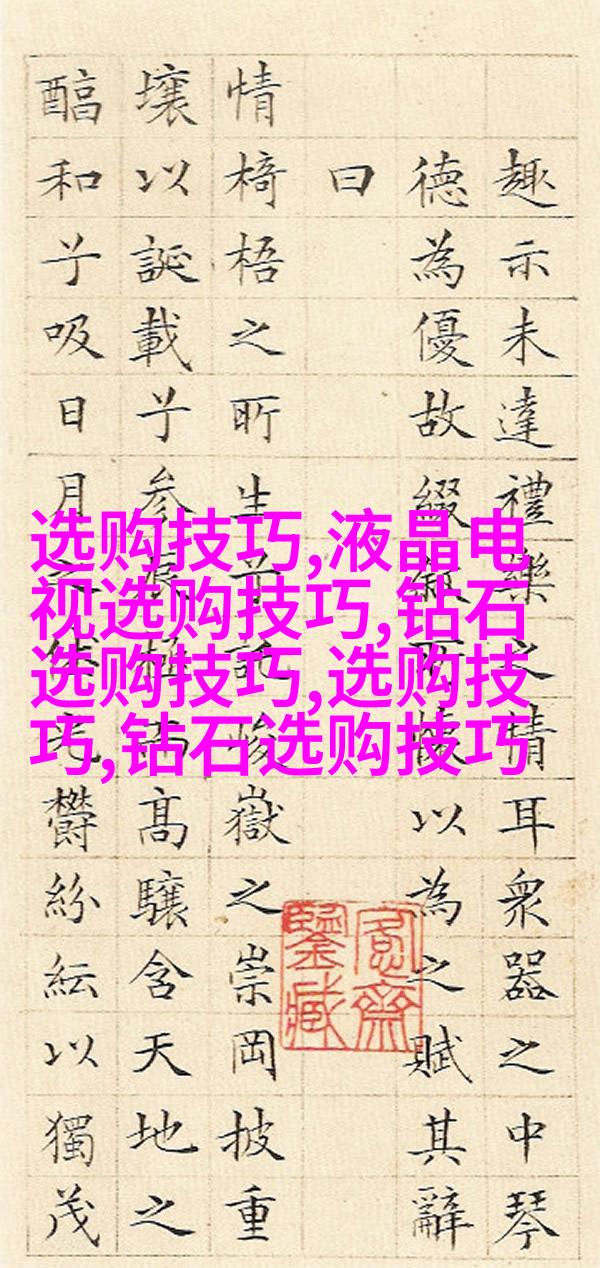 趣示未達禮樂之情耳衆器之中琴
德為優故綴叙所懷以為之賦其辭
曰
情椅梧之所生兮託峻嶽之崇岡披重
壤以誕載兮參辰極而高驤含天地之
醕和兮吸日月之休光鬱紛紜以獨茂
选购技巧,液晶电
视选购技巧,钻石
选购技巧,选购技
巧,钻石选购技巧
愙齋
鑒藏